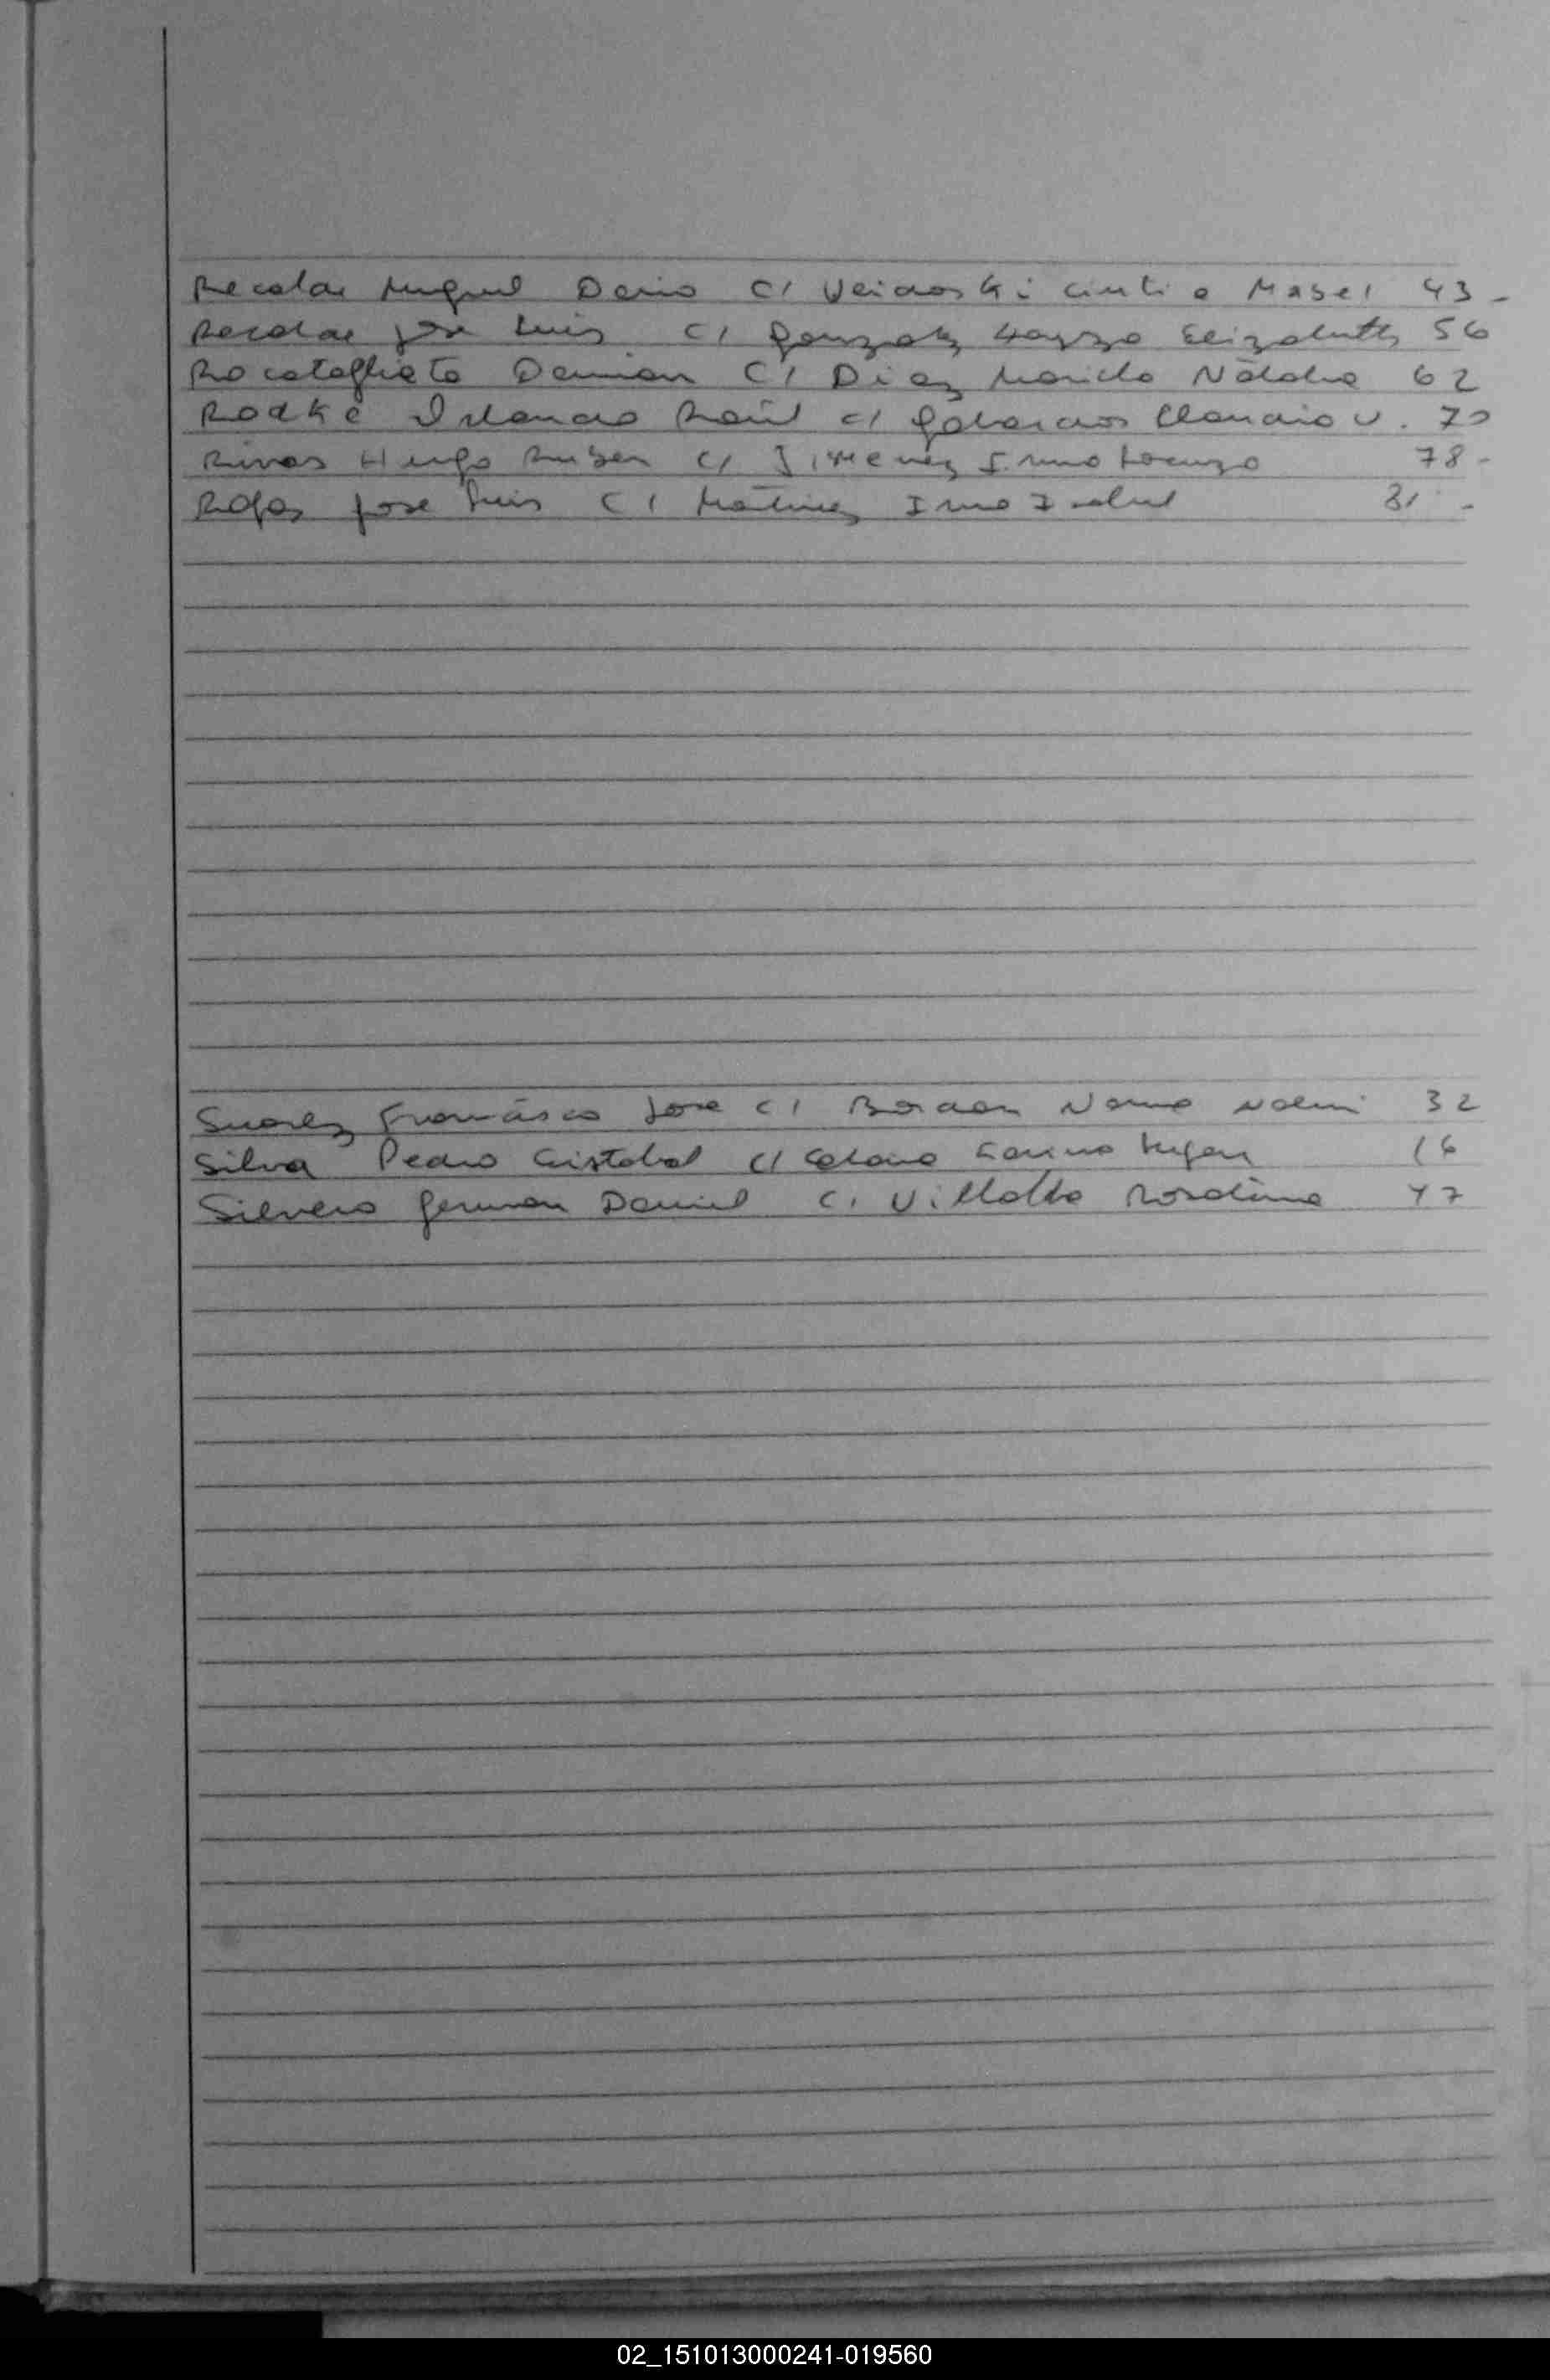 Recalde Miguel Dario C/ Veidoski Cintia Mabel 43 -
Recalde Jose Luis C/ Gonzalez Elizabeth 56
Rocatagliata Damian C/ Diaz Natalia 62
Rodke Orlando Raúl C/ Claudia V.
Rivas Hugo Ruben C/ Jimenez Irma 78 -
Rojas Jose Luis C/ Martinez Irma Isabel 31 -
Suarez Francisco Jose C/ Bordon Norma Noemi 32
Silva Pedro Cristobal C/ Karina 16
Silvero German Daniel C/ Villalba 47
02_151013000241-019560